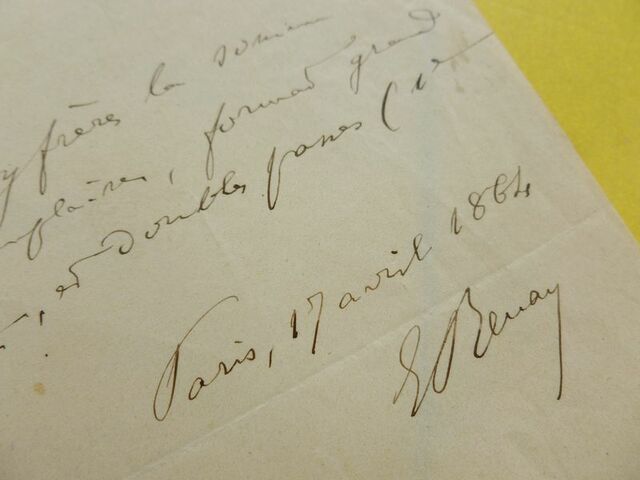 y frères la somme
mplaires, format grand
, et doubles passes (1re
Paris, 17 avril 1864
E Renan